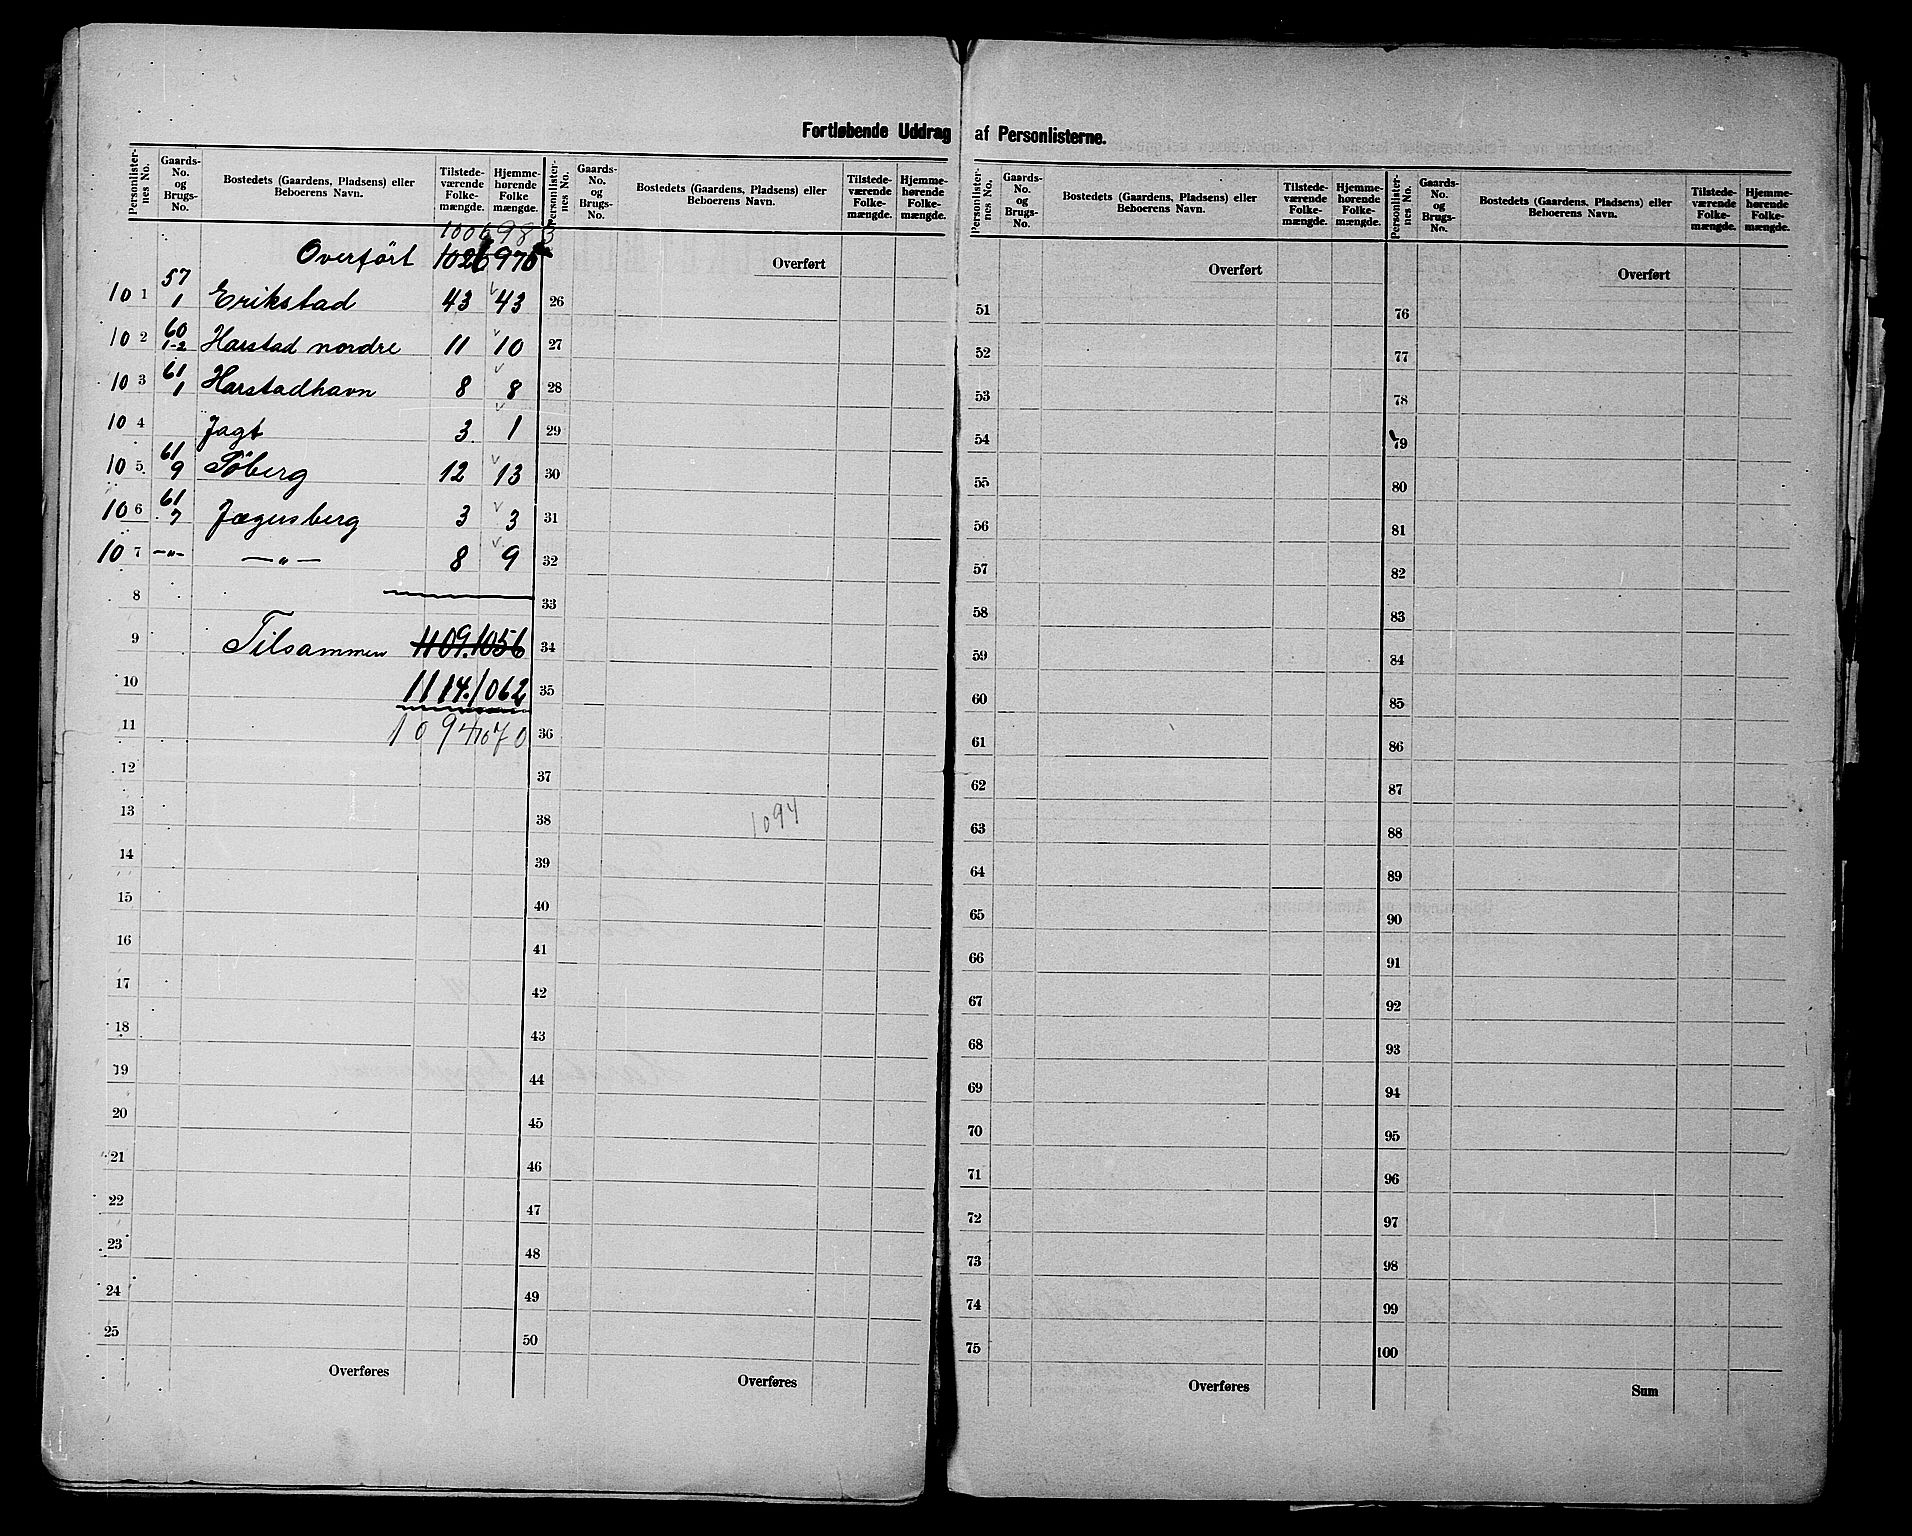 Fortløbende Uddrag af Personlisterne.
Personlister-nes No. Gaards-No. og Brugs-No. Bostedets (Gaardens, Pladsens) eller Beboerens Navn. Tilstede-værende Folke-mængde. Hjemme-hørende Folke mængde.
1006 983
Overført 1026
57
10 1 1 Erikstad 43 43
60
10 2 1-2 Harstad nordre 11 10
61
10 3 1 Harstadhavn 8 8
10 4 Jagt 3 1
61
10 5 9 Søberg 12 13
61
10 6 7 Jægersberg 3 3
10 7 -„- -„- 8 9
8
9 Tilsammen 1109. 1056
10 1114. 1062
11 1094 1070
12
13
14
15
16
17
18
19
20
21
22
23
24
25
Overføres
Personlister-nes No. Gaards-No. og Brugs-No. Bostedets (Gaardens, Pladsens) eller Beboerens Navn. Tilstede-værende Folke-mængde. Hjemme-hørende Folke-mængde.
Overført
26
27
28
29
30
31
32
33
34
35
36
37
38 1094
39
40
41
42
43
44
45
46
47
48
49
50
Overføres
Personlister-nes No. Gaards-No. og Brugs-No. Bostedets (Gaardens, Pladsens) eller Beboerens Navn. Tilstede-værende Folke-mængde. Hjemme-hørende Folke-mængde.
Overført
51
52
53
54
55
56
57
58
59
60
61
62
63
64
65
66
67
68
69
70
71
72
73
74
75
Overføres
Personlister-nes No. Gaards-No. og Brugs-No. Bostedets (Gaardens, Pladsens) eller Beboerens Navn. Tilstede-værende Folke-mængde. Hjemme-hørende Folke-mængde.
Overført
76
77
78
79
80
81
82
83
84
85
86
87
88
89
90
91
92
93
94
95
96
97
98
99
100
Sum